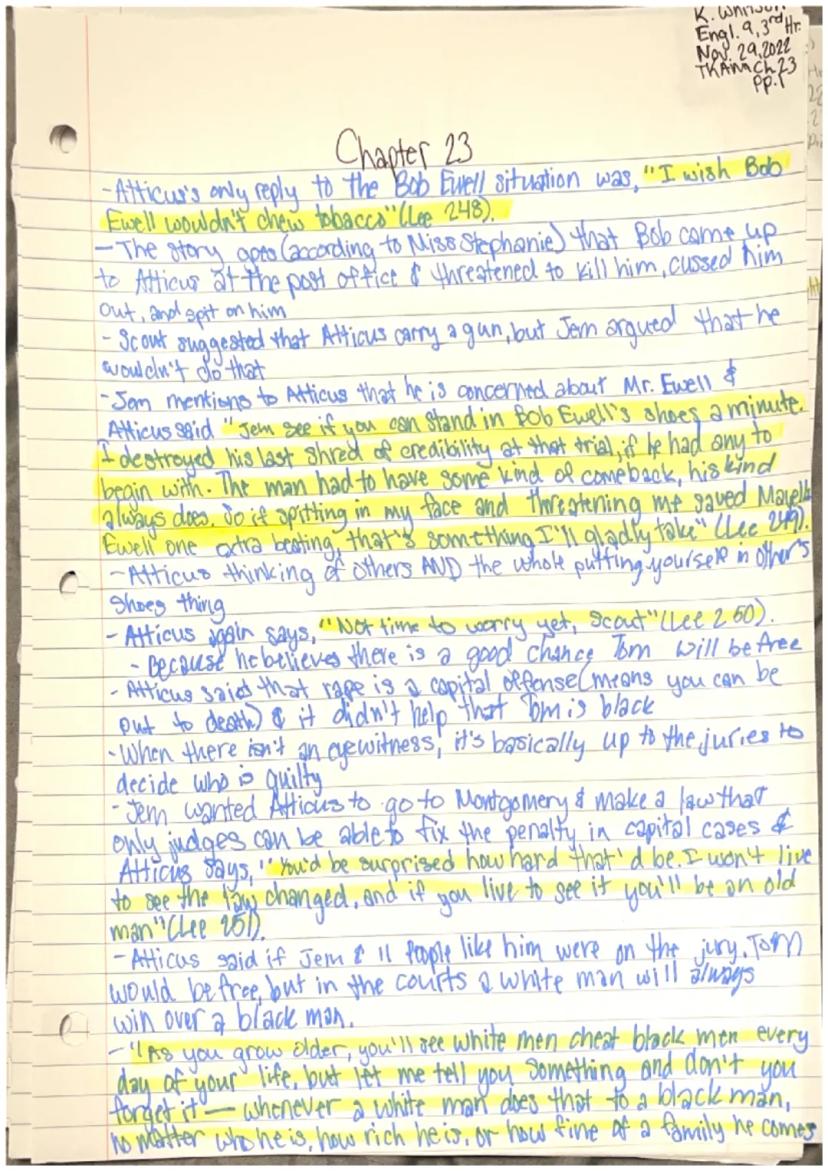 K. Whitson
Engl. 9, 3rd Hr.
Nov. 29, 2022
TKAM Ch. 23
pp. 1
Chapter 23
-Atticus's only reply to the Bob Ewell situation was, "I wish Bob
Ewell wouldn't chew tobacco" (Lee 248).
-The story goes (according to Miss Stephanie) that Bob came up
to Atticus at the post office & threatened to kill him, cussed him
out, and spit on him
- Scout suggested that Atticus carry a gun, but Jem argued that he
wouldn't do that
-Jem mentions to Atticus that he is concerned about Mr. Ewell &
Atticus said "Jem see if you can stand in Bob Ewell's shoes a minute.
I destroyed his last shred of credibility at that trial, if he had any to
begin with. The man had to have some kind of comeback, his kind
always does. So if spitting in my face and threatening me saved Mayella
Ewell one extra beating, that's something I'll gladly take" (Lee 249).
-Atticus thinking of others AND the whole putting yourself in other's
shoes thing
- Atticus again says, "Not time to worry yet, Scout" (Lee 250).
- Because he believes there is a good chance Tom will be free
- Atticus said that rape is a capital offense (means you can be
put to death) & it didn't help that Tom is black
-When there isn't an eyewitness, it's basically up to the juries to
decide who is guilty
- Jem wanted Atticus to go to Montgomery & make a law that
only judges can be able to fix the penalty in capital cases &
Atticus says, "You'd be surprised how hard that'd be. I won't live
to see the law changed, and if you live to see it you'll be an old
man" (Lee 251).
-Atticus said if Jem & 11 people like him were on the jury, Tom
would be free, but in the courts a white man will always
win over a black man.
- "As you grow older, you'll see white men cheat black men every
day of your life, but let me tell you something and don't you
forget it — whenever a white man does that to a black man,
no matter who he is, how rich he is, or how fine of a family he comes